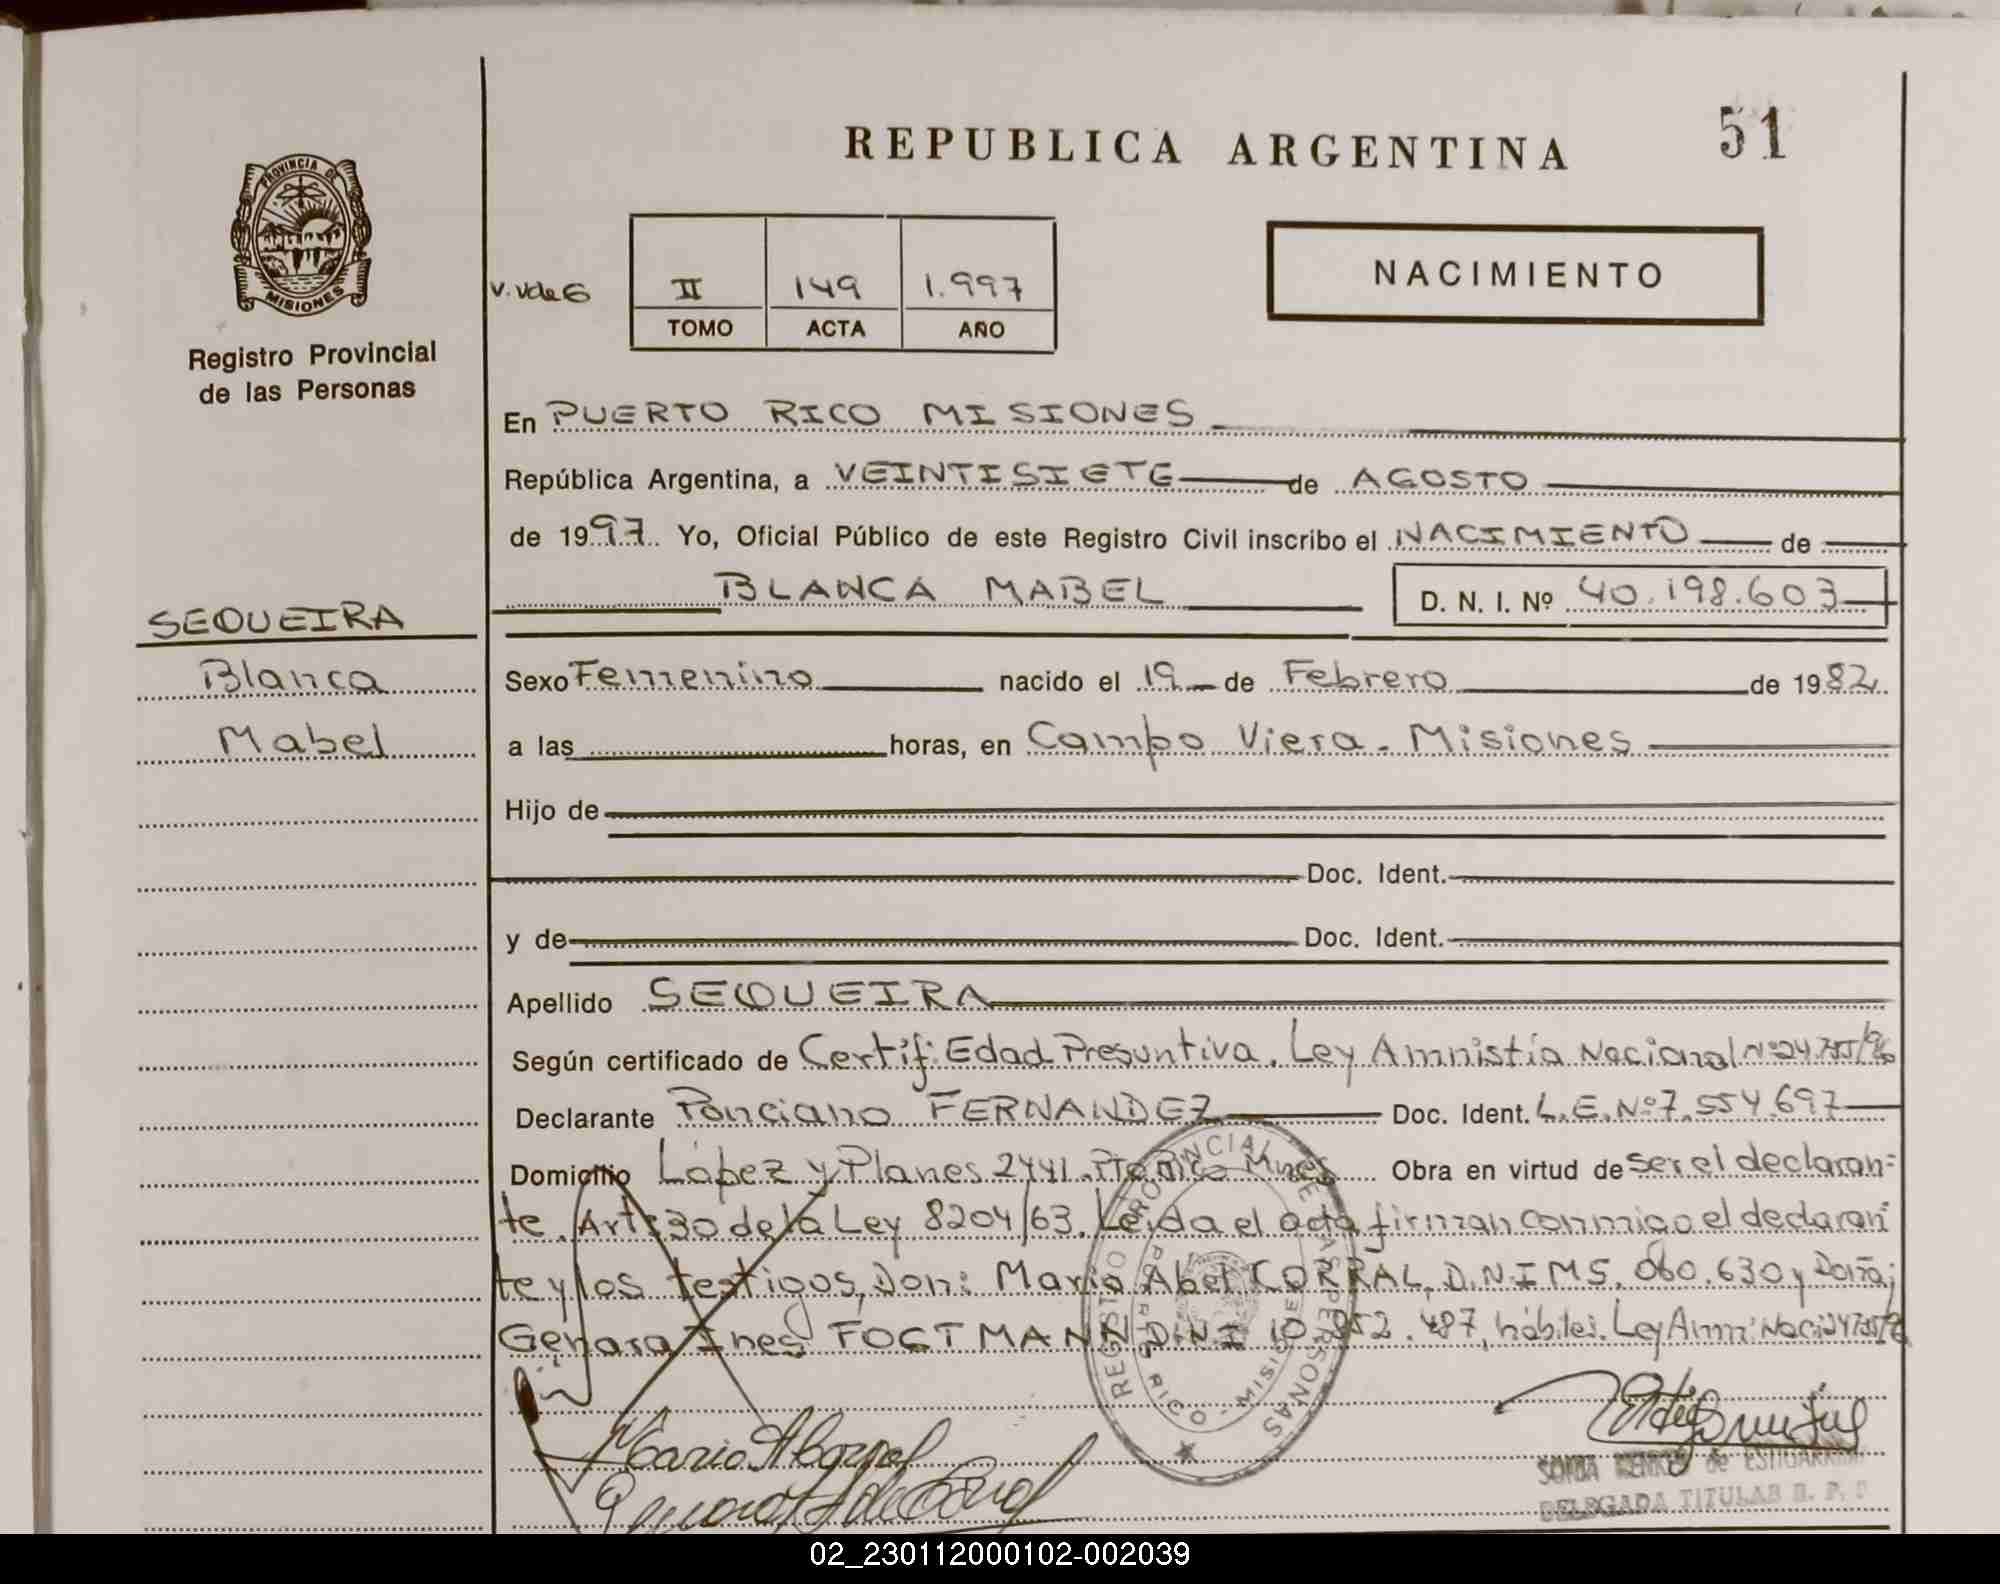 REPUBLICA ARGENTINA
51
PROVINCIA DE
MISIONES
Registro Provincial
de las Personas
V. Vde G
II 149 1.997
TOMO ACTA AÑO
NACIMIENTO
En PUERTO RICO MISIONES
República Argentina, a VEINTISIETE de AGOSTO
de 1997 Yo, Oficial Público de este Registro Civil inscribo el NACIMIENTO de
BLANCA MABEL D. N. I. Nº 40.198.603
SEQUEIRA
Blanca
Mabel
Sexo Femenino nacido el 19 de Febrero de 1982
a las horas, en Campo Viera - Misiones
Hijo de
Doc. Ident.
y de Doc. Ident.
Apellido SEQUEIRA
Según certificado de Certif: Edad Presuntiva. Ley Amnistía Nacional Nº 24.755/96
Declarante Ponciano FERNANDEZ Doc. Ident. L.E.Nº 7.554.697
Domicilio López y Planes 2441. Pto Rico Mnes Obra en virtud de ser el declaran=
te. Art: 30 de la Ley 8204/63. Leida el acta firman conmigo el declaran
te y los testigos, Don: Mario Abel CORRAL, D.N.I M5. 060.630 y Doña;
Genara Ines FOGTMANN D.N.I 10.852.487, hábiles. Ley Amn: Nac: 24755/96
REGISTRO PROVINCIAL DE LAS PERSONAS
PUERTO RICO - MISIONES
Mario A Corral
DELEGADA TITULAR R. P. P
02_230112000102-002039